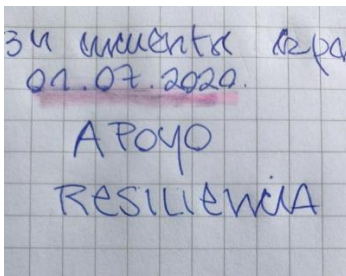 34 encuentro
01.07.2020.
APOYO
RESILIENCIA